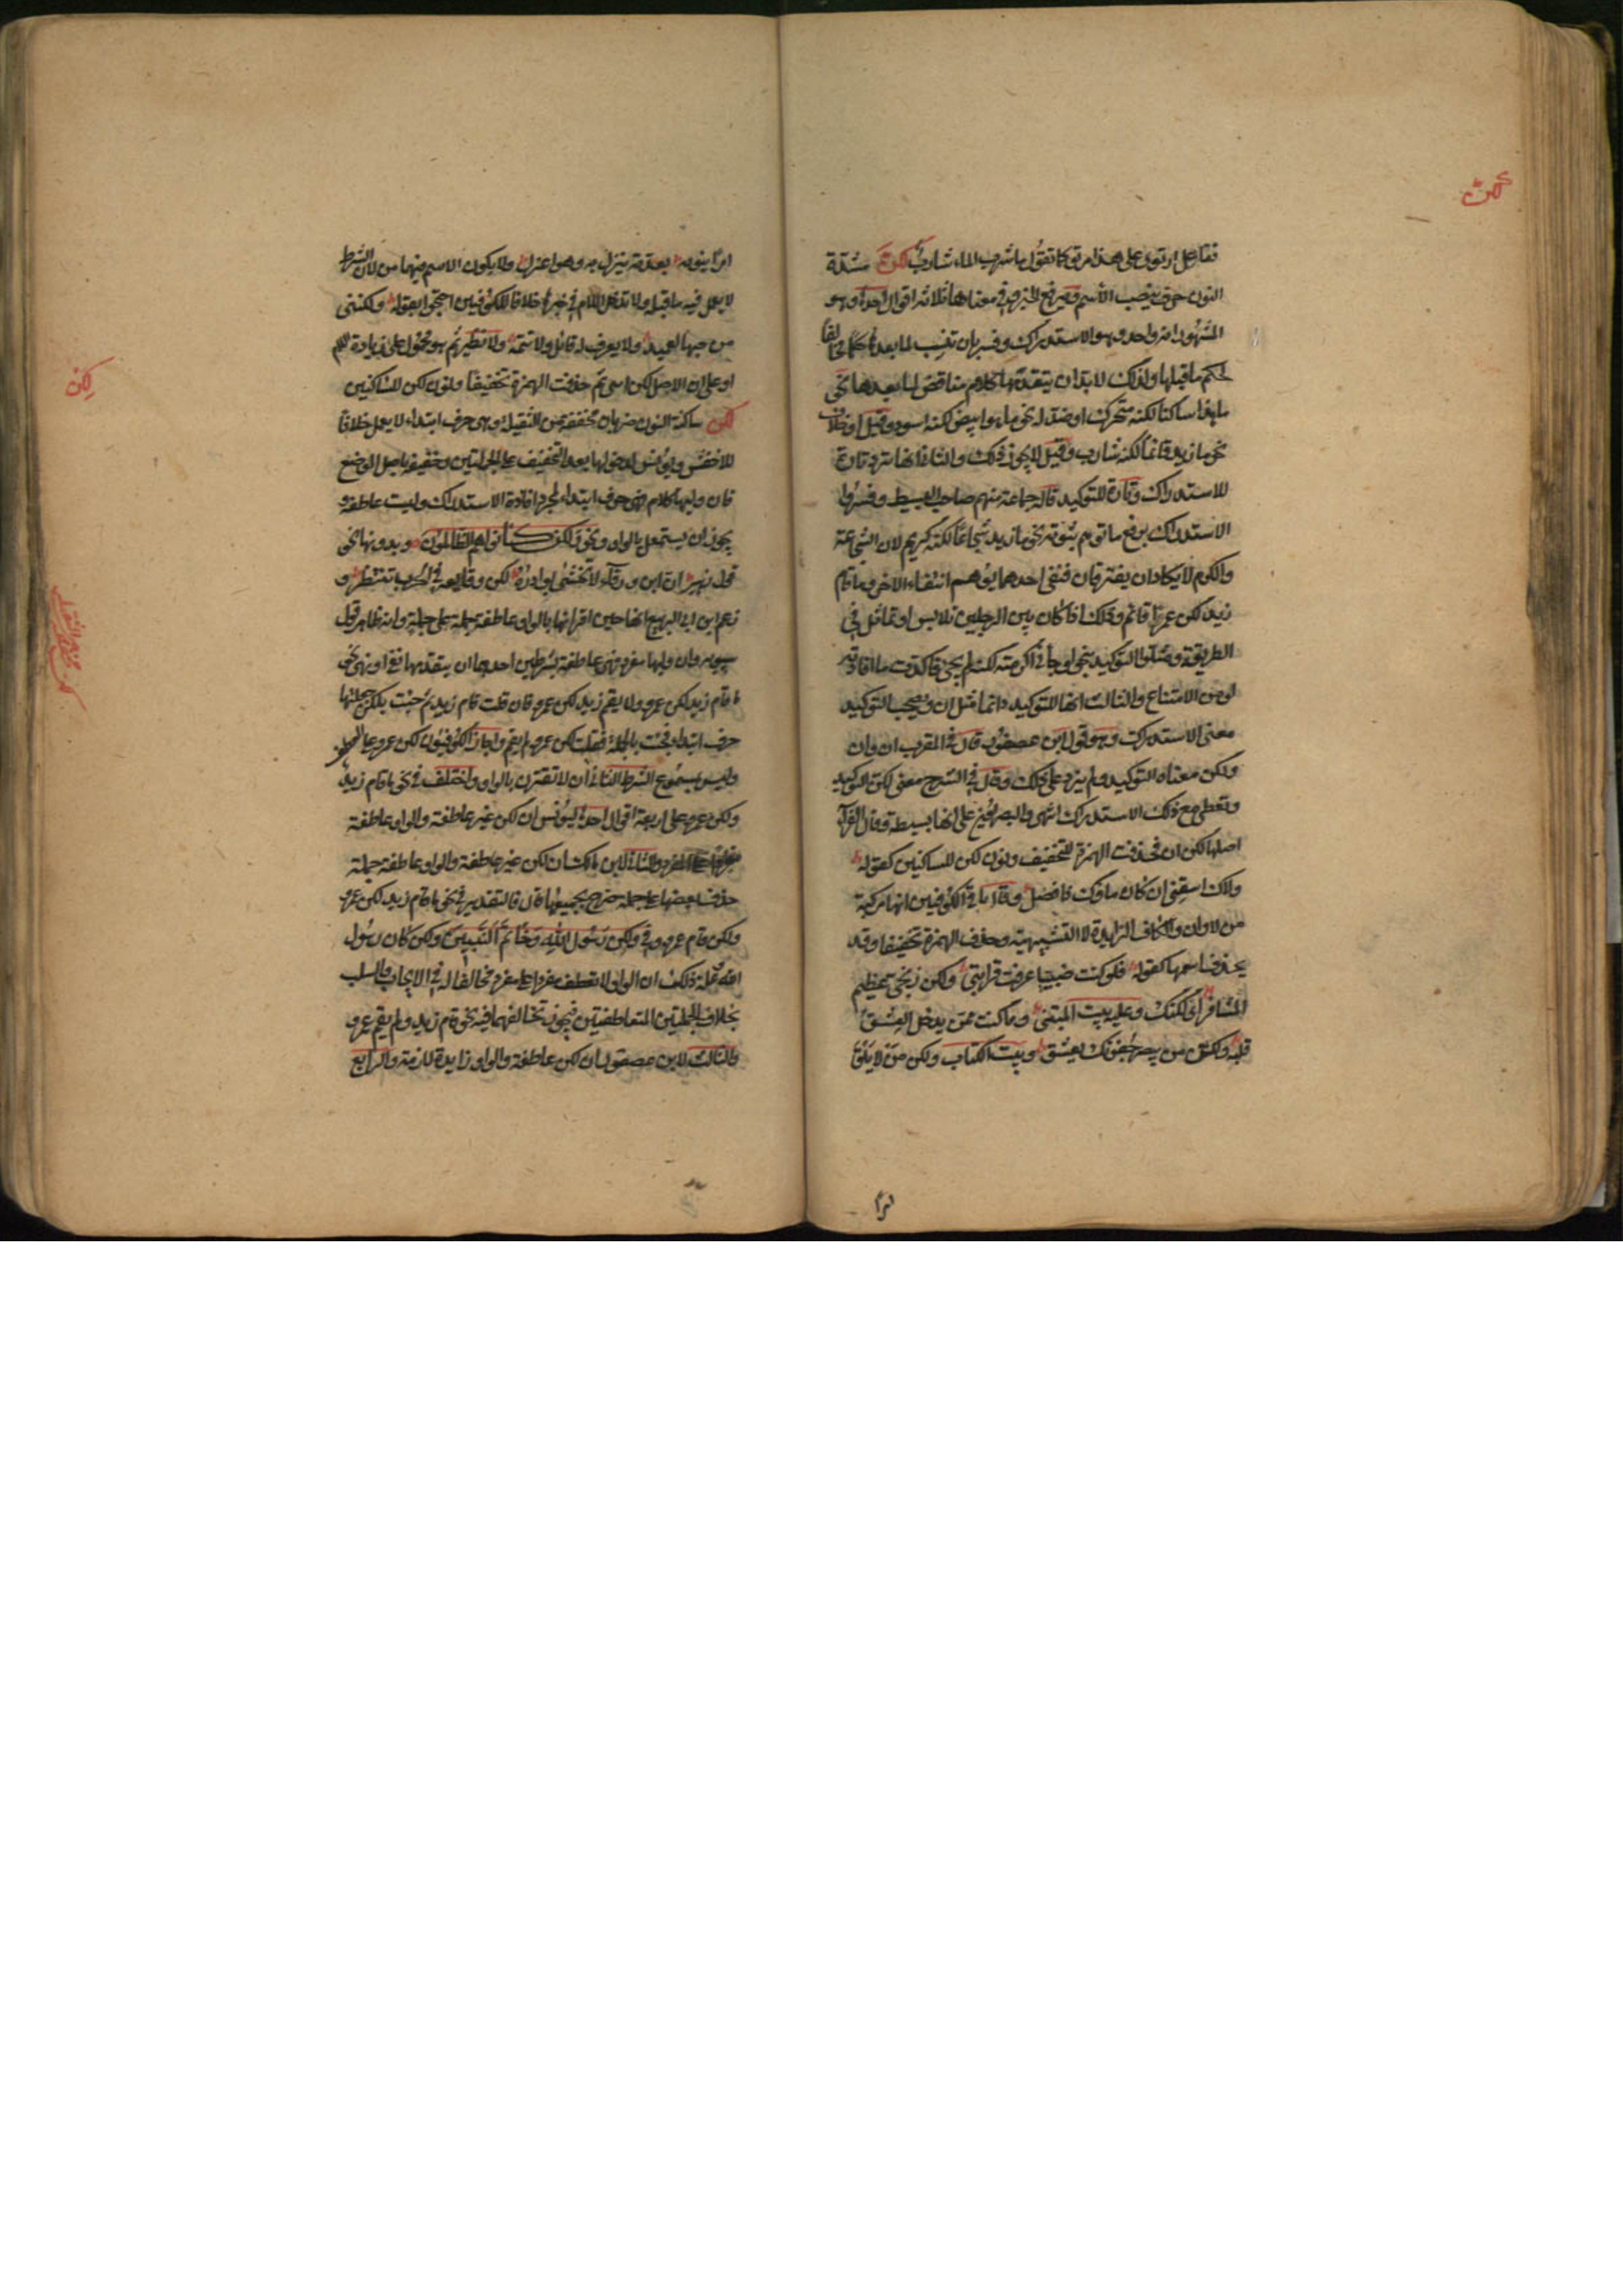 لكنّ
ففاعل ارتوى على هذا مرتو كما تقول ما شرب الماء شارب لكنّ مشدّدة
النون حرف ينصب الاسم ويرفع الخبر وفي معناها ثلاثة اقوال احدها وهو
المشهور انه واحد وهو الاستدراك وفسر بان تنسب لما بعدها حكما مخالفا
لحكم ما قبلها ولذلك لابد ان يتقدمها كلام مناقض لما بعدها نحو
ما هذا ساكنا لكنه متحرك او ضد له نحو ما هو ابيض لكنه اسود وقيل او خلاف
نحو ما زيد قائما لكنه شارب وقيل لا يجوز ذلك والثاني انها ترد تارة
للاستدراك وتارة للتوكيد قاله جماعة منهم صاحب البسيط وفسروا
الاستدراك برفع ما توهم ثبوته نحو ما زيد شجاعا لكنه كريم لان الشجاعة
والكرم لا يكادان يفترقان فنفي احدهما يوهم انتفاء الاخر وما قام
زيد لكن عمرا قائم وذلك اذا كان بين الرجلين تلابس او تماثل في
الطريقة ومثلوا التوكيد بنحو لو جاءني اكرمته لكنه لم يجئ فاكدت ما افادته
لو من الامتناع والثالث انها للتوكيد دائما مثل ان ويصحب التوكيد
معنى الاستدراك وهو قول ابن عصفور قال في المقرب ان وان
ولكن معناه التوكيد ولم يزد على ذلك وقال في الشرح معنى لكن التوكيد
وتعطي مع ذلك الاستدراك انتهى والبصريون على انها بسيطة وقال الفراء
اصلها لكن ان فحذفت الهمزة للتخفيف ونون لكن للساكنين كقوله
ولاك اسقني ان كان ماؤك ذا فضل وقال باقي الكوفيين انها مركبة
من لا وان والكاف الزايدة لا التشبيهية وحذف الهمزة تخفيفا وقد
يحذف اسمها كقوله فلو كنت ضبيا عرفت قرابتي ولكن زنجي عظيم
المشافر اى لكنك وعليه بيت المتنبي وما كنت ممن يدخل العشق
قلبه ولكن من يبصر جفونك يعشق وبيت الكتاب ولكن من لا يلق
امرا
امرا ينوبه بعدته ينزل به وهو اعزل ولا يكون الاسم فيهما من لان الشرط
لا يعمل فيه ما قبله ولا تدخل اللام في خبرها خلافا للكوفيين احتجوا بقوله ولكنني
من حبها لعميد ولا يعرف له قائل ولا تتمة ولا نظير ثم هو محمول على زيادة اللام
او على ان الاصل لكن انني ثم حذفت الهمزة تخفيفا ونون لكن للساكنين
لكن
لكن ساكنة النون ضربان مخففة من الثقيلة وهي حرف ابتداء لا يعمل خلافا
للاخفش ويونس لدخولها بعد التخفيف على الجملتين وخفيفة باصل الوضع
فان وليها كلام فهي حرف ابتداء لمجرد افادة الاستدراك وليست عاطفة و
يجوز ان يستعمل بالواو ونحو ولكن كانوا هم الظالمون وبدونها نحو
قول زهير ان ابن ورقاء لا تخشى بوادره لكن وقايعه في الحرب تنتظر و
زعم ابن ابي الربيع انها حين اقترانها بالواو عاطفة جملة على جملة وانه ظاهر قول
سيبويه وان وليها مفرد فهي عاطفة بشرطين احدهما ان يتقدمها نفي او نهي نحو
ما قام زيد لكن عمرو ولا يقم زيد لكن عمرو فان قلت قام زيد ثم جئت بلكن جعلتها
حرف ابتداء فجئت بالجملة فقلت لكن عمرو لم يقم واجاز الكوفيون لكن عمرو على العطف
وليس بمسموع الشرط الثاني ان لا تقترن بالواو واختلف في نحو ما قام زيد
ولكن عمرو على اربعة اقوال احدها ليونس ان لكن غير عاطفة والواو عاطفة
مفردا على مفرد والثاني لابن مالك ان لكن غير عاطفة والواو عاطفة جملة
حذف بعضها على جملة صرح بجميعها قال فالتقدير في نحو ما قام زيد لكن عمرو
ولكن قام عمرو وفي ولكن رسول الله وخاتم النبيين ولكن كان رسول
الله وعلة ذلك ان الواو لا تعطف مفردا على مفرد مخالف له في الايجاب والسلب
بخلاف الجملتين المتعاطفتين فيجوز تخالفهما فيه نحو قام زيد ولم يقم عمرو
والثالث لابن عصفور ان لكن عاطفة والواو زايدة لازمة والرابع